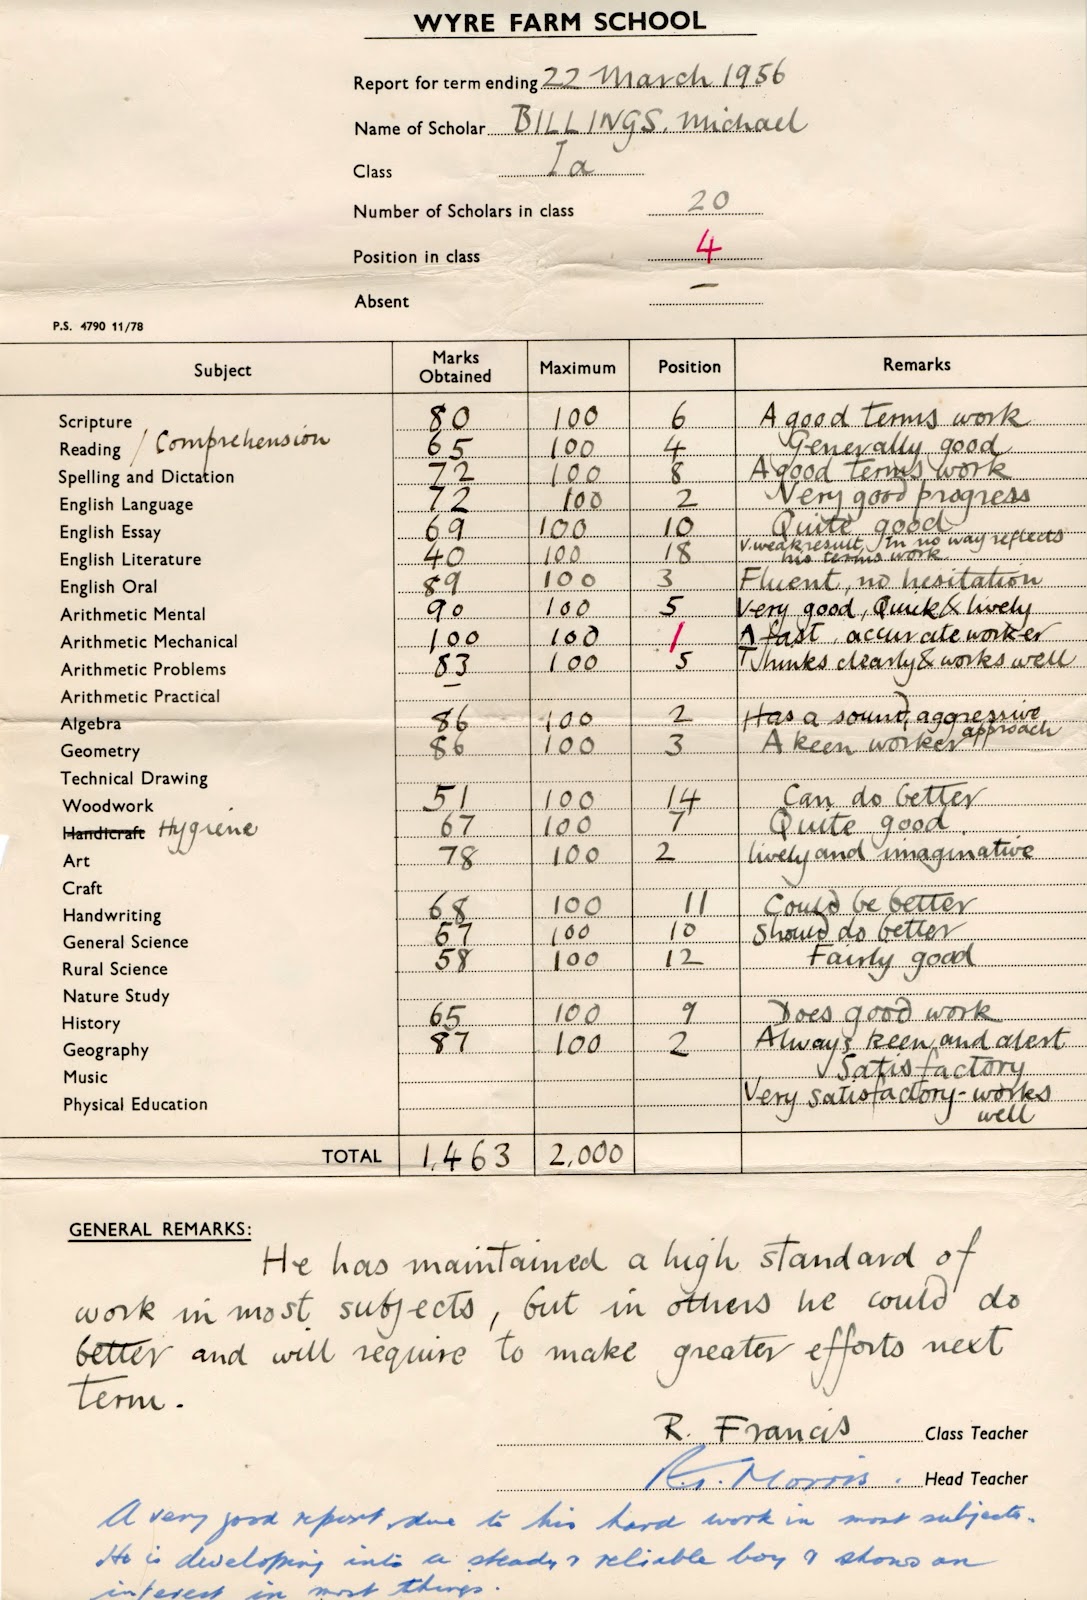 WYRE FARM SCHOOL
Report for term ending 22 March 1956
Name of Scholar BILLINGS. Michael
Class Ia
Number of Scholars in class 20
Position in class 4
Absent —
P.S. 4790 11/78
Subject Marks Obtained Maximum Position Remarks
Scripture 80 100 6 A good terms work
Reading / Comprehension 65 100 4 Generally good
Spelling and Dictation 72 100 8 A good terms work
English Language 72 100 2 Very good progress
English Essay 69 100 10 Quite good
English Literature 40 100 18 V. weak result. In no way reflects his terms work
English Oral 89 100 3 Fluent, no hesitation
Arithmetic Mental 90 100 5 Very good, Quick & lively
Arithmetic Mechanical 100 100 1 A fast, accurate worker
Arithmetic Problems 83 100 5 Thinks clearly & works well
Arithmetic Practical —
Algebra 86 100 2 Has a sound, aggressive approach
Geometry 86 100 3 A keen worker
Technical Drawing
Woodwork 51 100 14 Can do better
Handicraft Hygiene 67 100 7 Quite good
Art 78 100 2 lively and imaginative
Craft
Handwriting 68 100 11 Could be better
General Science 57 100 10 Should do better
Rural Science 58 100 12 Fairly good
Nature Study
History 65 100 9 Does good work
Geography 87 100 2 Always keen and alert
Music Satisfactory
Physical Education Very satisfactory - works well
TOTAL 1,463 2,000
GENERAL REMARKS:
He has maintained a high standard of
work in most subjects, but in others he could do
better and will require to make greater efforts next
term.
R. Francis Class Teacher
Morris. Head Teacher
A very good report, due to his hard work in most subjects.
He is developing into a steady & reliable boy & shows an
interest in most things.